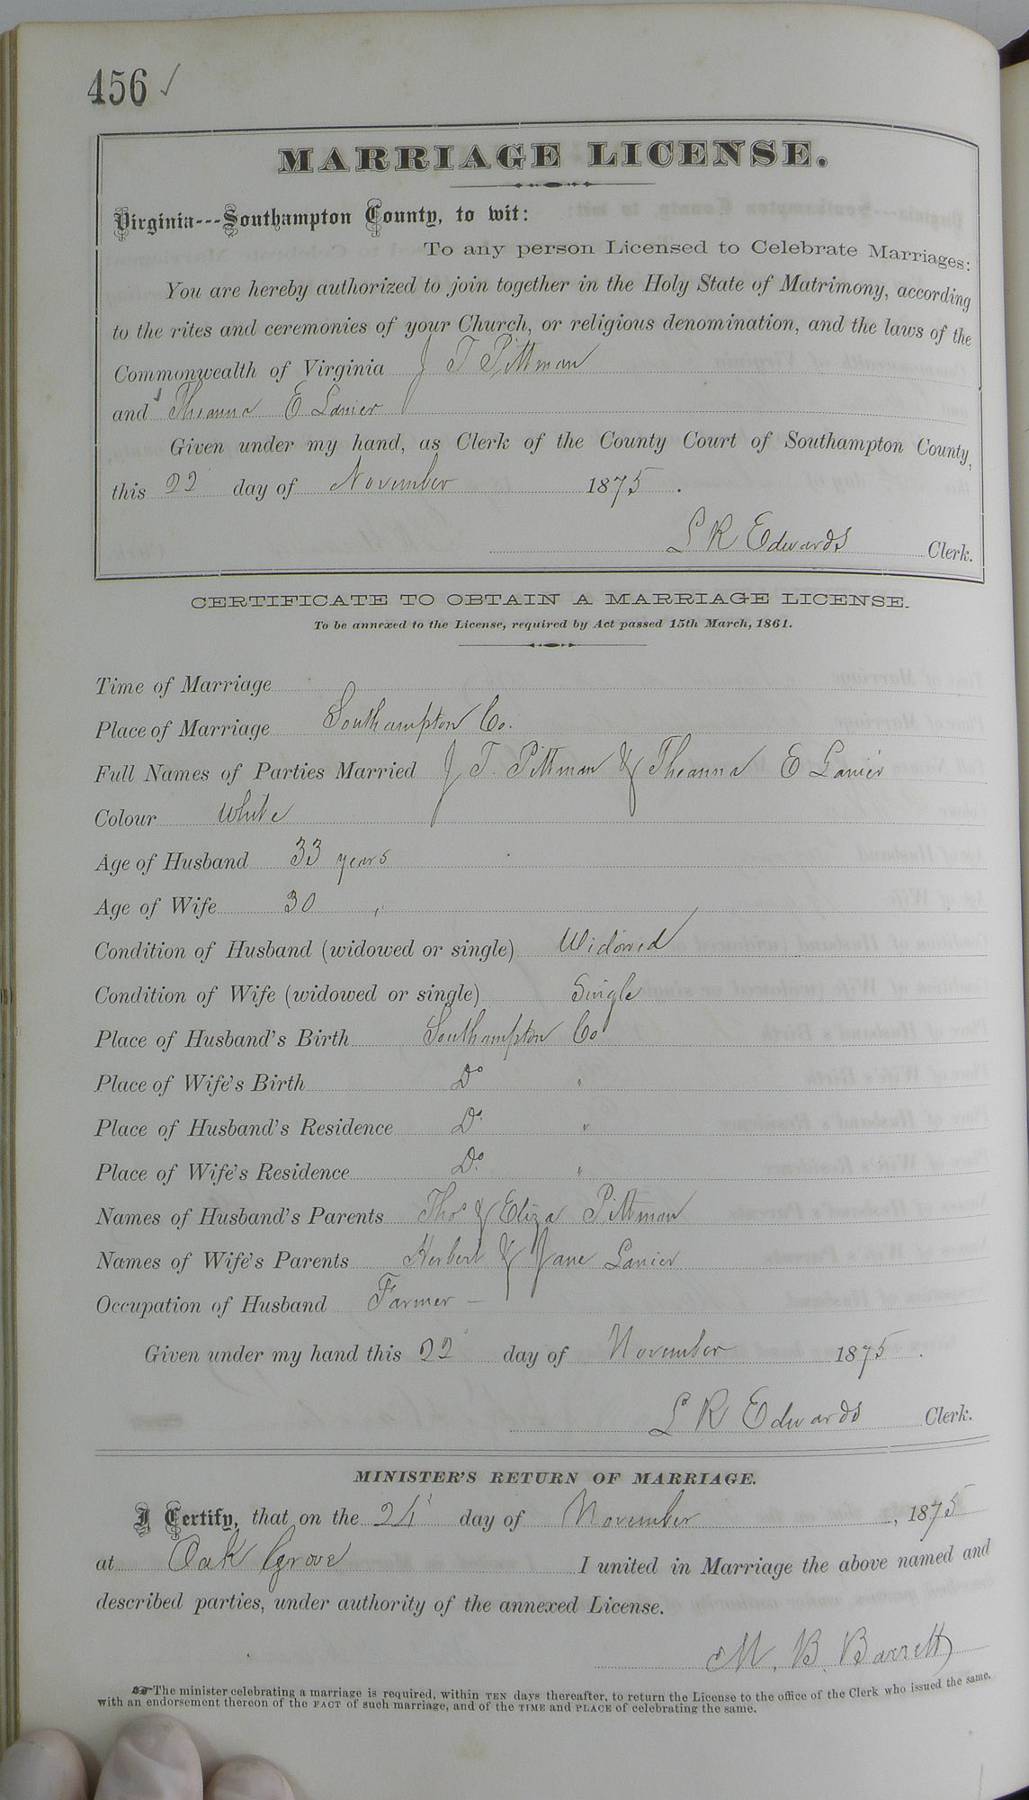 456 ✓
MARRIAGE LICENSE.
Virginia---Southampton County, to wit:
To any person Licensed to Celebrate Marriages:
You are hereby authorized to join together in the Holy State of Matrimony, according
to the rites and ceremonies of your Church, or religious denomination, and the laws of the
Commonwealth of Virginia J T Pittman
and Theanna E Lanier
Given under my hand, as Clerk of the County Court of Southampton County,
this 22 day of November 1875.
L R Edwards Clerk.
CERTIFICATE TO OBTAIN A MARRIAGE LICENSE.
To be annexed to the License, required by Act passed 15th March, 1861.
Time of Marriage
Place of Marriage Southampton Co.
Full Names of Parties Married J T. Pittman & Theanna E Lanier
Colour White
Age of Husband 33 years
Age of Wife 30 "
Condition of Husband (widowed or single) Widowed
Condition of Wife (widowed or single) Single
Place of Husband's Birth Southampton Co
Place of Wife's Birth Do "
Place of Husband's Residence Do "
Place of Wife's Residence Do "
Names of Husband's Parents Thos & Eliza Pittman
Names of Wife's Parents Herbert & Jane Lanier
Occupation of Husband Farmer –
Given under my hand this 22 day of November 1875.
L R Edwards Clerk.
MINISTER'S RETURN OF MARRIAGE.
I Certify, that on the 24 day of November, 1875
at Oak Grove I united in Marriage the above named and
described parties, under authority of the annexed License.
M. B. Barrett
☞The minister celebrating a marriage is required, within TEN days thereafter, to return the License to the office of the Clerk who issued the same,
with an endorsement thereon of the FACT of such marriage, and of the TIME and PLACE of celebrating the same.